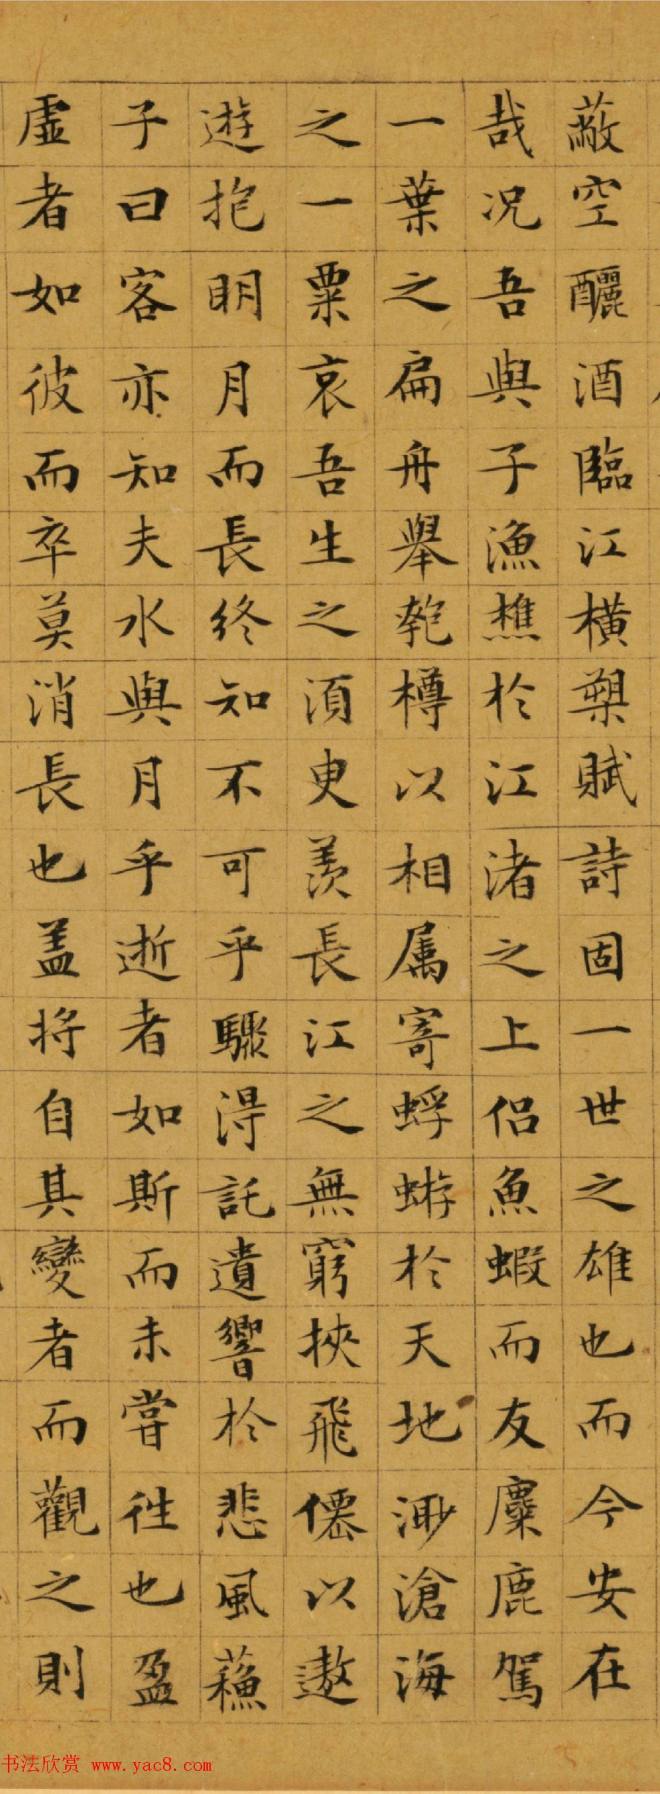 蔽空釃酒臨江橫槊賦詩固一世之雄也而今安在
哉況吾與子漁樵於江渚之上侶魚蝦而友麋鹿駕
一葉之扁舟舉匏樽以相属寄蜉蝣於天地渺滄海
之一粟哀吾生之須臾羨長江之無窮挾飛僊以遨
遊抱明月而長終知不可乎驟得託遺響於悲風蘇
子曰客亦知夫水與月乎逝者如斯而未嘗往也盈
虛者如彼而卒莫消長也盖將自其變者而觀之則
书法欣赏 www.yac8.com